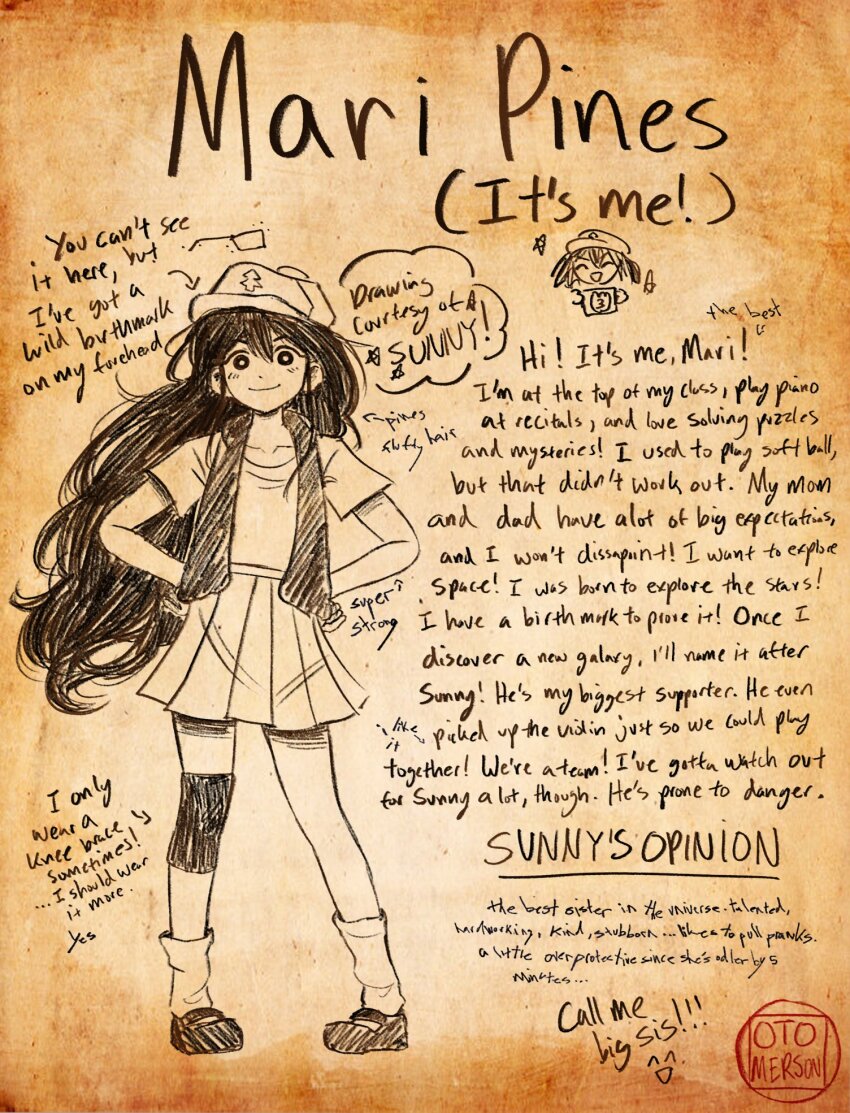 Mari Pines
(It's me!)
You can't see
it here, but
I've got a
wild birthmark
on my forehead
Drawing
Courtesy of
SUNNY!
the best
Hi! It's me, Mari!
I'm at the top of my class, play piano
at recitals, and love solving puzzles
and mysteries! I used to play soft ball,
but that didn't work out. My mom
and dad have alot of big expectations,
and I won't dissapoint! I want to explore
space! I was born to explore the stars!
I have a birthmark to prove it! Once I
discover a new galaxy, I'll name it after
Sunny! He's my biggest supporter. He even
picked up the violin just so we could play
together! We're a team! I've gotta watch out
for Sunny a lot, though. He's prone to danger.
pines
fluffy hair
super
strong
i like
it
I only
wear a
knee brace
sometimes!
...I should wear
it more.
yes
SUNNY'S OPINION
the best sister in the universe. talented,
hardworking, kind, stubborn... likes to pull pranks.
a little overprotective since she's odler by 5
minutes...
Call me
big sis!!!
OTO
MERSON